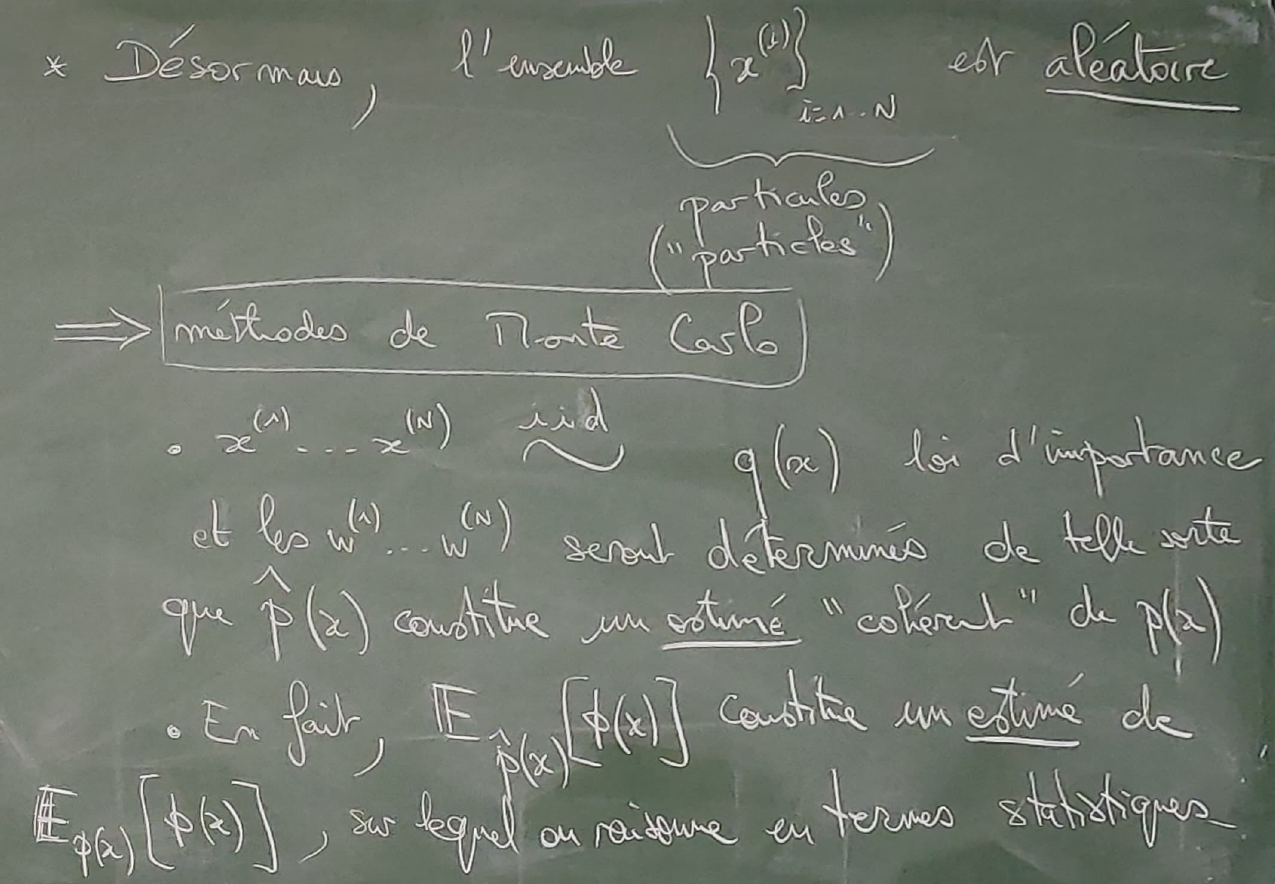 * Désormais, l'ensemble {x^(i)}_{i=1..N} est aléatoire
particules
("particles")
⟹ méthodes de Monte Carlo
• x^(1) ... x^(N) iid ~ q(x) loi d'importance
et les w^(1)...w^(N) seront déterminés de telle sorte
que p̂(x) constitue un estimé "cohérent" de p(x)
• En fait, 𝔼_{p̂(x)}[ϕ(x)] constitue un estimé de
𝔼_{p(x)}[ϕ(x)], sur lequel on raisonne en termes statistiques_